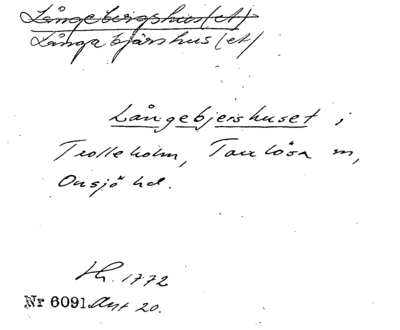 Långebergshus(et)
Långa bjärshus(et)
Långebjershuset i
Trolleholm, Torrlösa sn,
Onsjö hd.
Hr. 1772
Nr 6091. Avs 20.